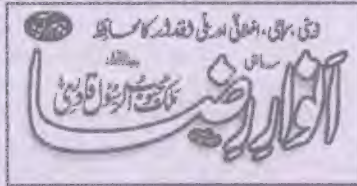 دینی، سماجی، اخلاقی اور ملی اقدار کا محافظ
سہ ماہی
انوارِ رضا
ملک محبوب الرسول قادری